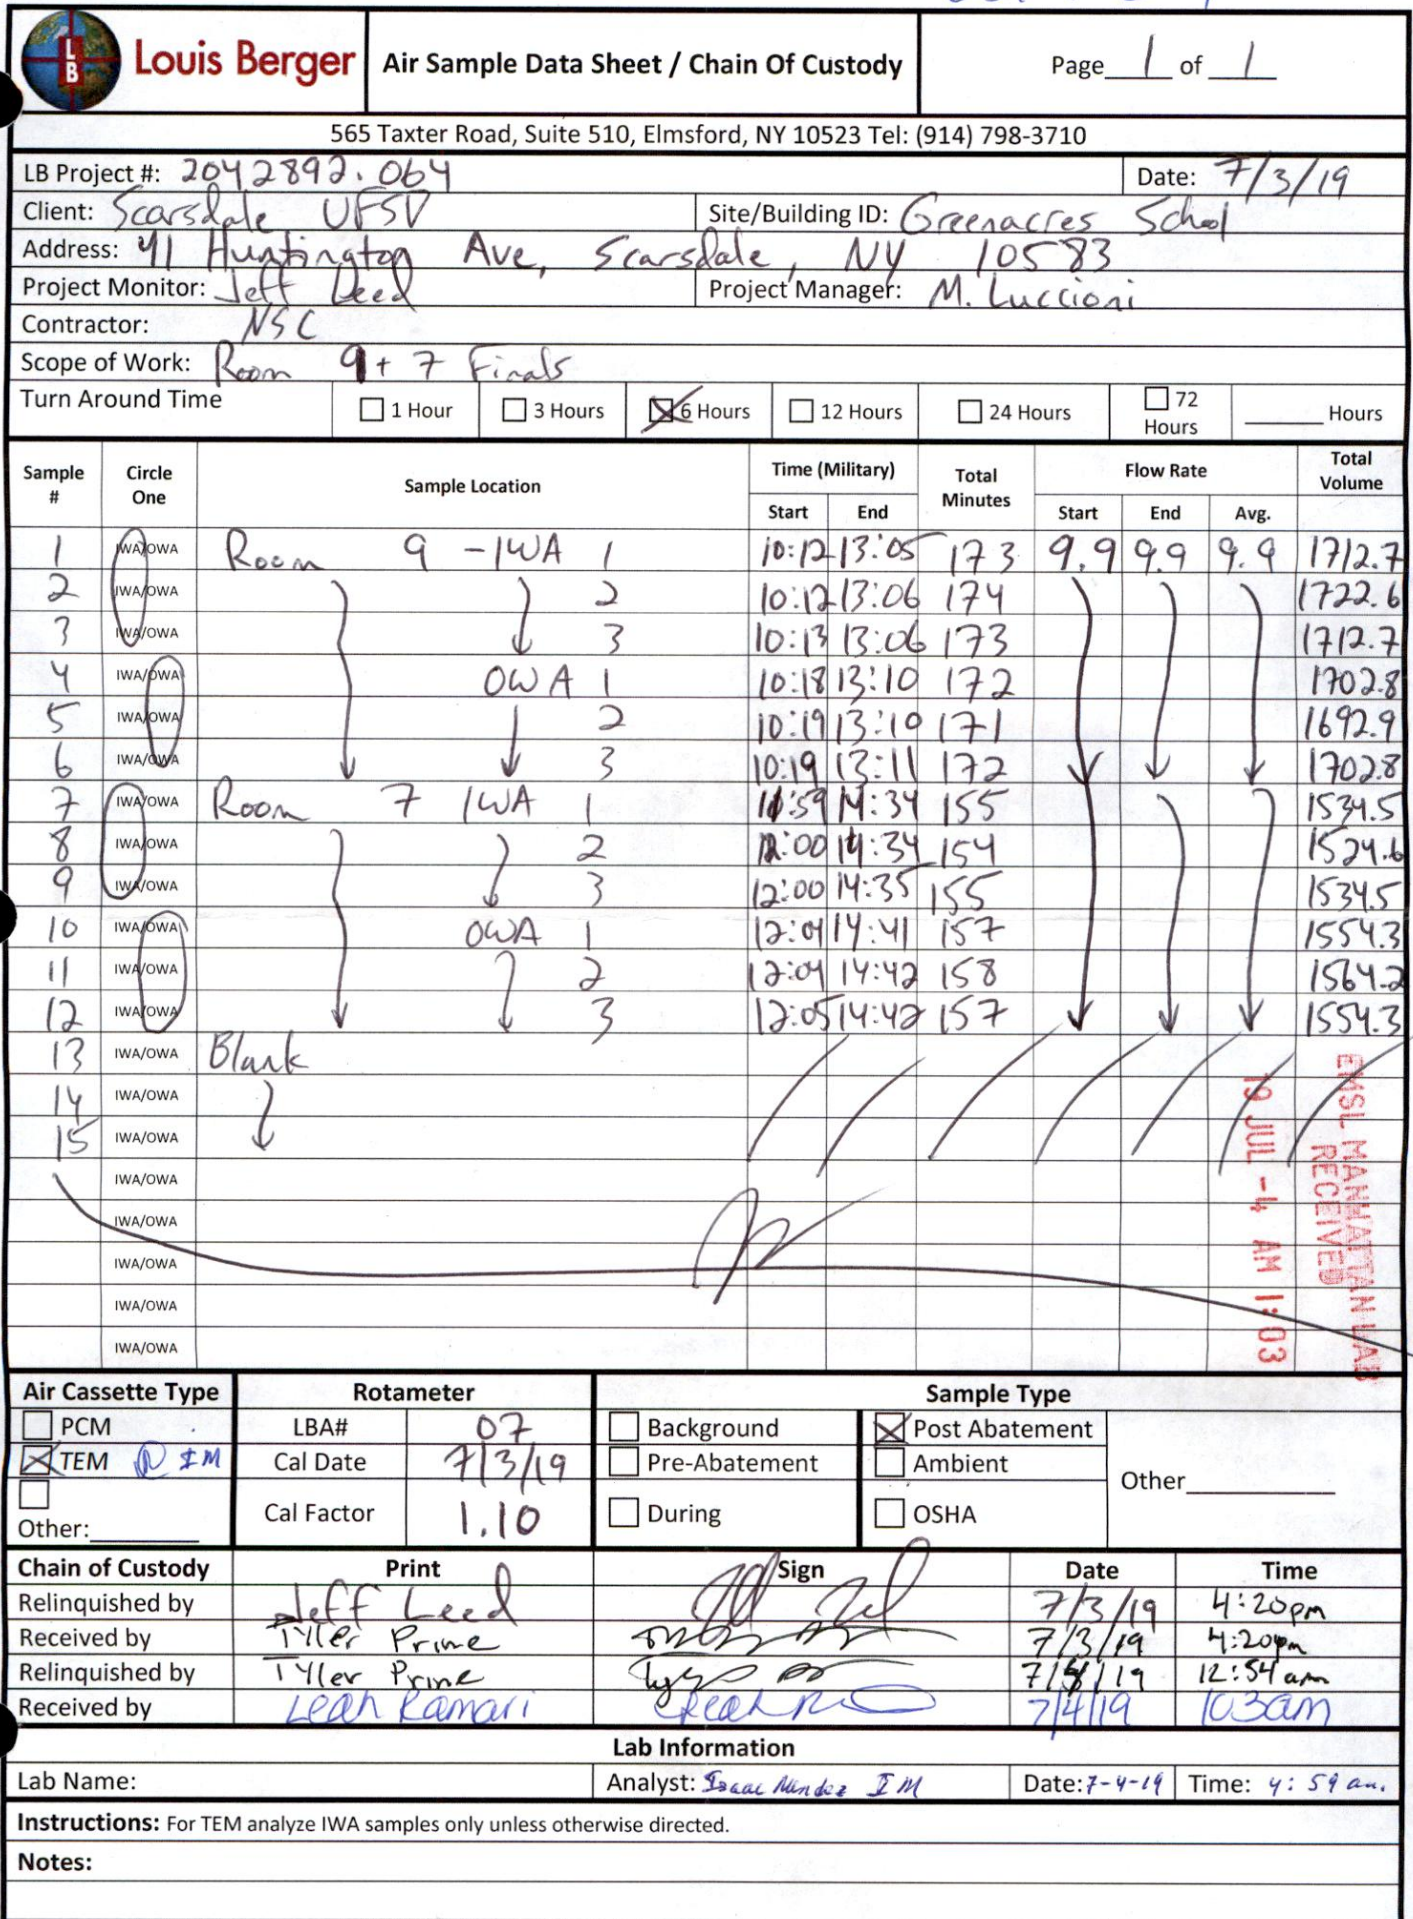 LB
Louis Berger
Air Sample Data Sheet / Chain Of Custody
Page 1 of 1
565 Taxter Road, Suite 510, Elmsford, NY 10523 Tel: (914) 798-3710
LB Project #: 2042892.064 Date: 7/3/19
Client: Scarsdale UFSD Site/Building ID: Greenacres School
Address: 41 Huntington Ave, Scarsdale, NY 10583
Project Monitor: Jeff Leed Project Manager: M. Luccioni
Contractor: NSC
Scope of Work: Room 9 + 7 Finals
Turn Around Time 1 Hour 3 Hours 6 Hours 12 Hours 24 Hours 72 Hours ____ Hours
Sample # Circle One Sample Location Time (Military) Total Minutes Flow Rate Total Volume
Start End Start End Avg.
1 IWA/OWA Room 9 - IWA 1 10:12 13:05 173 9.9 9.9 9.9 1712.7
2 IWA/OWA 2 10:12 13:06 174 1722.6
3 IWA/OWA 3 10:13 13:06 173 1712.7
4 IWA/OWA OWA 1 10:18 13:10 172 1702.8
5 IWA/OWA 2 10:19 13:10 171 1692.9
6 IWA/OWA 3 10:19 13:11 172 1702.8
7 IWA/OWA Room 7 IWA 1 11:59 14:34 155 1534.5
8 IWA/OWA 2 12:00 14:34 154 1524.6
9 IWA/OWA 3 12:00 14:35 155 1534.5
10 IWA/OWA OWA 1 12:04 14:41 157 1554.3
11 IWA/OWA 2 12:04 14:42 158 1564.2
12 IWA/OWA 3 12:05 14:42 157 1554.3
13 IWA/OWA Blank
14 IWA/OWA
15 IWA/OWA
IWA/OWA
IWA/OWA
IWA/OWA
IWA/OWA
IWA/OWA
EMSL MANHATTAN LAB
RECEIVED
19 JUL -4 AM 1:03
Air Cassette Type Rotameter Sample Type
PCM LBA# 07 Background Post Abatement
TEM IM Cal Date 7/3/19 Pre-Abatement Ambient Other____
Other:____ Cal Factor 1.10 During OSHA
Chain of Custody Print Sign Date Time
Relinquished by Jeff Leed 7/3/19 4:20pm
Received by Tyler Prime 7/3/19 4:20pm
Relinquished by Tyler Prime 7/4/19 12:54am
Received by Leah Ramari 7/4/19 103am
Lab Information
Lab Name: Analyst: Isaac Mendez IM Date: 7-4-19 Time: 4:59 am.
Instructions: For TEM analyze IWA samples only unless otherwise directed.
Notes: